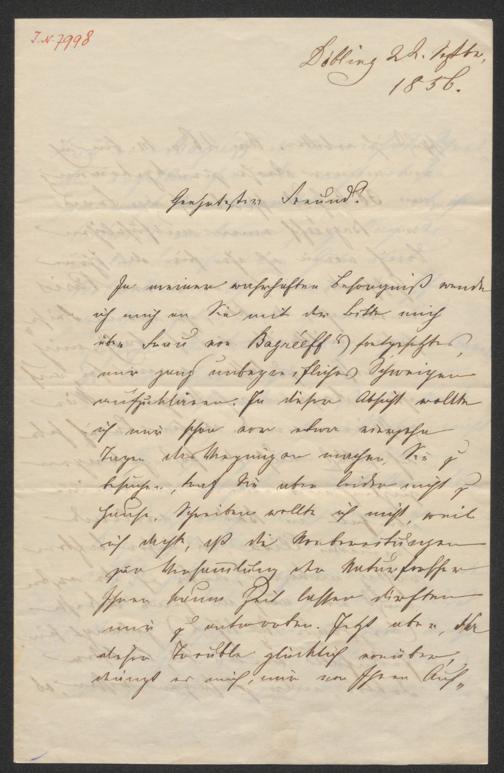 I.N. 7998
Döbling 22. Septbr.
1856.
Geehrtester Freund!
In meiner wahrhaften Besorgniß wende
ich mich an Sie mit der Bitte mich
über Frau von Bagréeff's fortgesetztes,
mir ganz unbegreifliches Schweigen
aufzuklären. In dieser Absicht wollte
ich mir schon vor etwa vierzehn
Tagen das Vergnügen machen, Sie zu
besuchen, traf Sie aber leider nicht zu
Hause. Schreiben wollte ich nicht, weil
ich dachte, daß die Vorbereitungen
zur Versammlung der Naturforscher
Ihnen kaum Zeit lassen dürften
mir zu antworten. Jetzt aber, da
dieser Trouble glücklich vorüber,
drängt es mich, mir von Ihnen Auf-